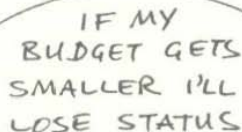 IF MY
BUDGET GETS
SMALLER I'LL
LOSE STATUS